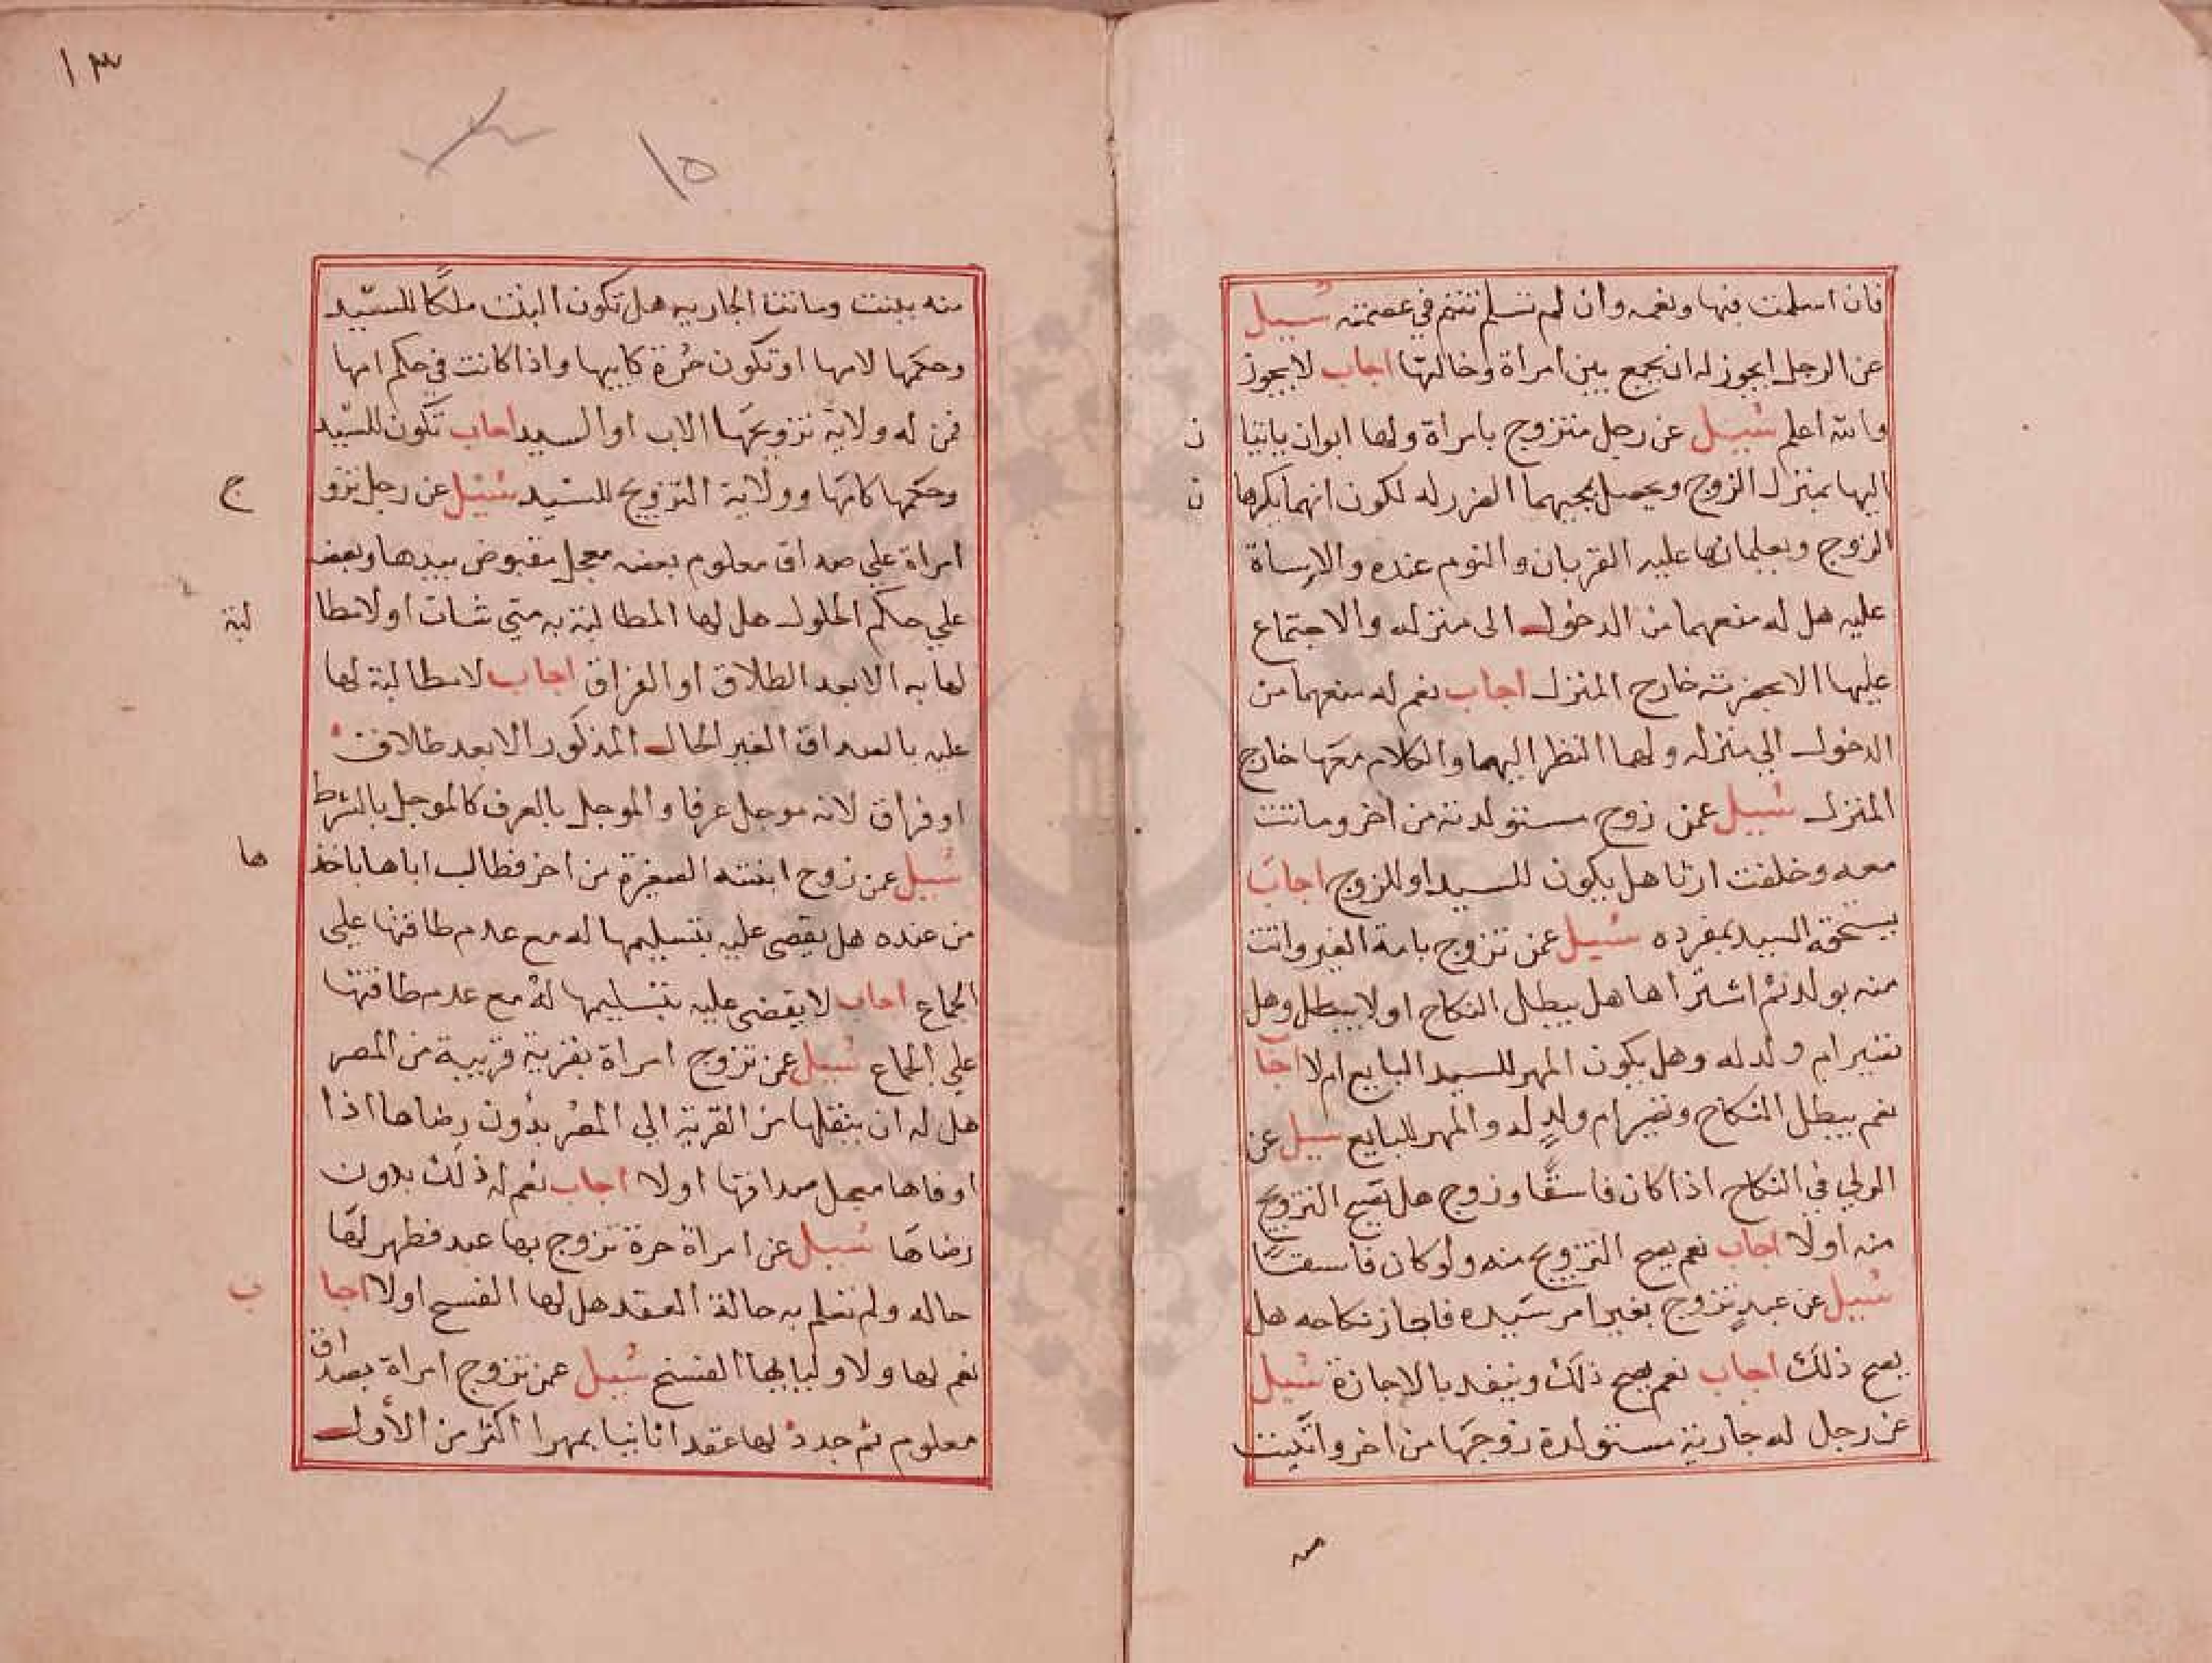 فان اسلمت فبها ونعمه وان لم تسلم تقم في عصمته سئيل
عن الرجل ايجوز له ان يجمع بين امراة وخالتها اجاب لا يجوز
والله اعلم سئيل عن رجل متزوج بامراة ولها ابوان ياتيا ن
اليها بمنزل الزوج ويحصل بمجيهما الضرر له لكون انهما يكرها ن
الزوج ويعلمانها عليه القربان والنوم عنده والاساة
عليه هل له منعهما من الدخول الى منزله والاجتماع
عليها الا بحضرته خارج المنزل اجاب نعم له منعهما من
الدخول الي منزله ولهما النظر اليهما والكلام معها خارج
المنزل سئيل عمن زوج مستولدته من اخر وماتت
معه وخلفت ارثا هل يكون للسيد او للزوج اجاب
يستحقه السيد بمفرده سئيل عمن تزوج بامة الغير واتت
منه بولد ثم اشتراها هل يبطل النكاح او لا يبطل وهل
تصير ام ولد له وهل يكون المهر للسيد البايع ام لا اجا
نعم يبطل النكاح وتصير ام ولد له والمهر للبايع سيل عن
الولي في النكاح اذا كان فاسقا وزوج هل يصح التزويج
منه اولا اجاب نعم يصح التزويج منه ولو كان فاسقا
سئيل عن عبد تزوج بغير امر سيده فاجاز نكاحه هل
يصح ذلك اجاب نعم يصح ذلك وينفد بالاجازة سئيل
عن رجل له جارية مستولدة زوجها من اخر واتت
١٣
١٥
منه ببنت وماتت الجاريه هل تكون البنت ملكا للسيد
وحكمها لامها او تكون حرة كابيها واذا كانت في حكم امها
فمن له ولاية تزويجها الاب او السيد اجاب تكون للسيد
وحكمها كامها وولاية التزويج للسيد سئيل عن رجل تزو ج
امراة علي صداق معلوم بعضه معجل مقبوض بيدها وبعضه
علي حكم الحلول هل لها المطالبة به متي شات او لا مطا لبة
لها به الا بعد الطلاق او الفراق اجاب لا مطالبة لها
عليه بالصداق الغير الحال المذكور الا بعد طلاق
او فراق لانه موجل عرفا والموجل بالعرف كالموجل بالشرط
سئيل عمن زوج ابنته الصغيرة من اخر فطالب اباها باخذ ها
من عنده هل يقضي عليه بتسليمها له مع عدم طاقتها علي
الجماع اجاب لا يقضي عليه بتسليمها له مع عدم طاقتها
علي الجماع سئيل عمن تزوج امراة بقرية قريبة من المصر
هل له ان ينقلها من القرية الي المصر بدون رضاها اذا
اوفاها معجل صداقها اولا اجاب نعم له ذلك بدون
رضاها سئيل عن امراة حرة تزوج بها عبد فظهر لها
حاله ولم تعلم به حالة العقد هل لها الفسخ اولا اجا ب
نعم لها ولاوليايها الفسخ سئيل عمن تزوج امراة بصداق
معلوم ثم جدد لها عقدا ثانيا بمهرا اكثر من الأول